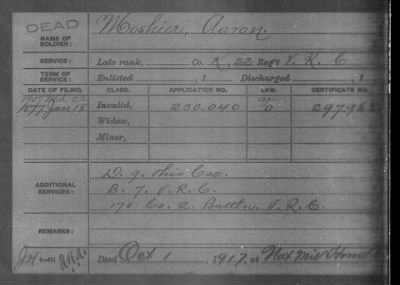 DEAD
NAME OF SOLDIER: Moshier, Aaron.
SERVICE: Late rank, Co. K, 22 Reg't V. R. C
TERM OF SERVICE: Enlisted , 1 Discharged , 1
DATE OF FILING. CLASS. APPLICATION NO. LAW. CERTIFICATE NO.
1877 Jan 18 Invalid, 230.040
Widow,
Minor,
ADDITIONAL SERVICES: D. 9. Ohio Cav.
B. 7. V. R. C.
170 Co. 2. Battln. V. R. C.
REMARKS:
Died Oct 1, 1917, at Nat Mil Home